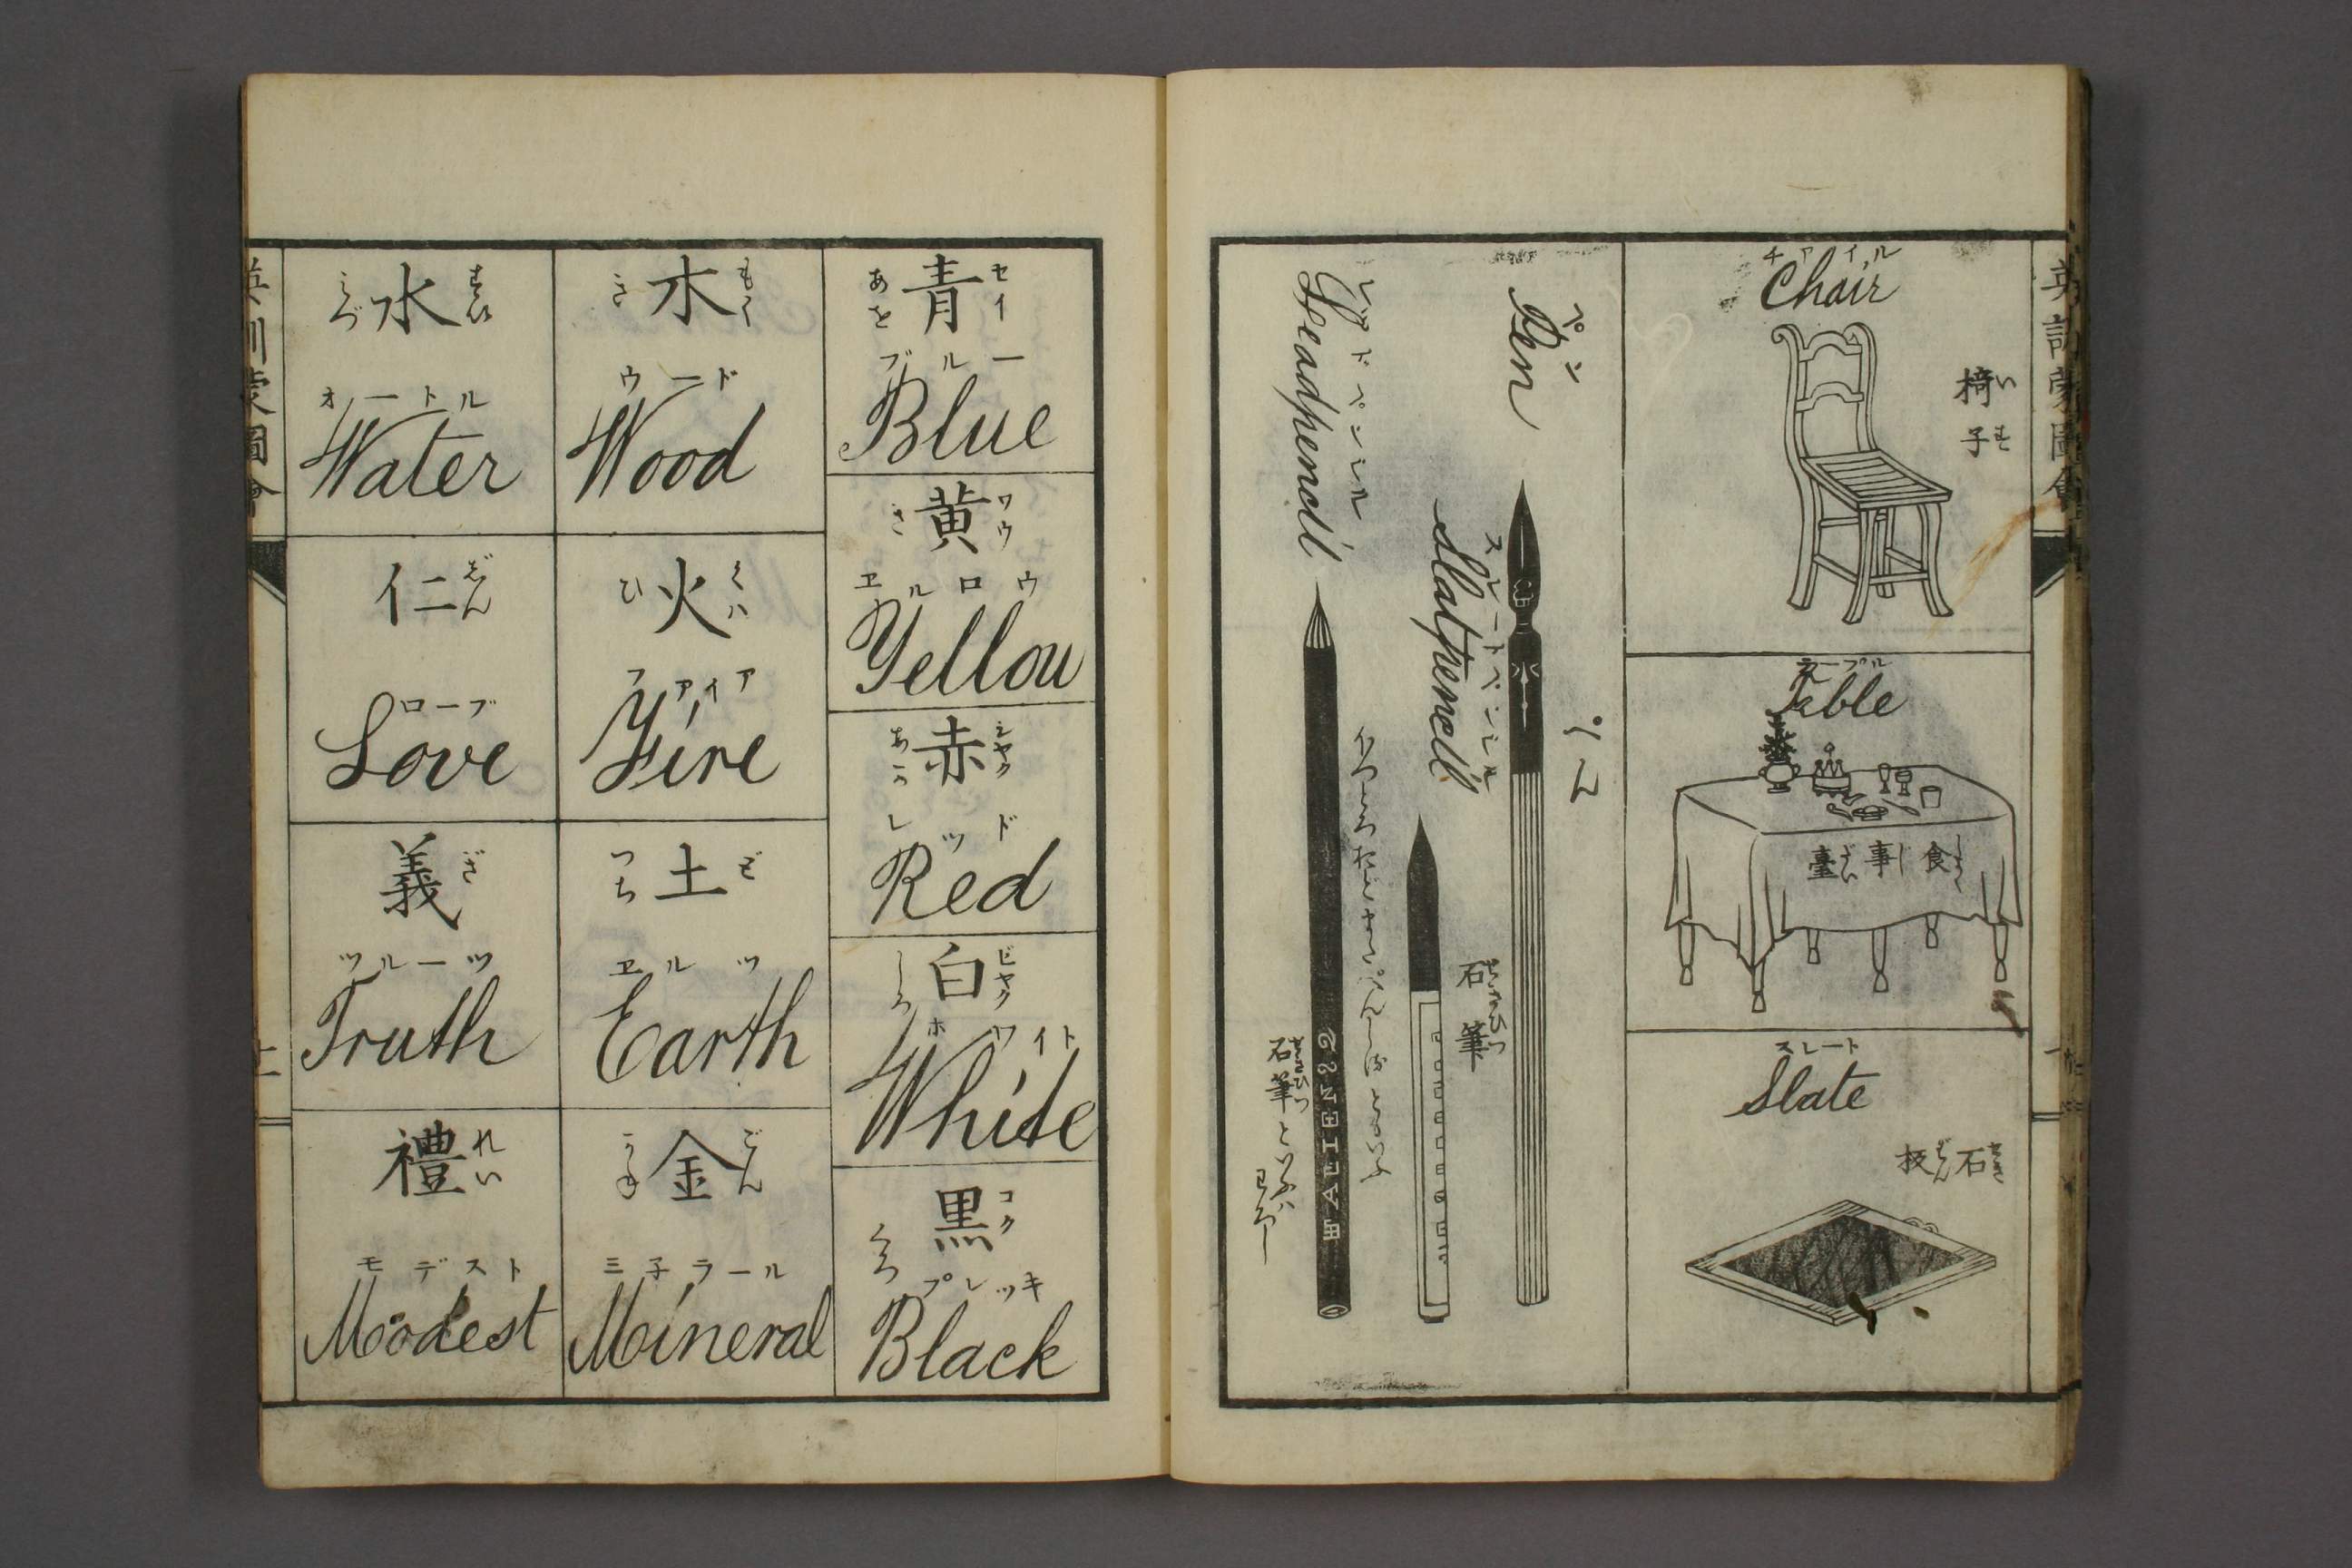 英訓蒙圖會
チアイル
Chair
椅子
いす
テーブル
Teble
食事臺
しよくじだい
スレート
Slate
石板
せきばん
ペン
Pen
ぺん
スレートペンシル
Slatpencil
石筆
せきひつ
レッドペンシル
Leadpencil
石筆といふハわろし
せきひつ
セイ
青
あを
ブルー
Blue
ワウ
黄
き
ヱルロウ
Yellou
シヤク
赤
あか
レッド
Red
ビヤク
白
しろ
ホワイト
White
コク
黒
くろ
ブレッキ
Black
もく
木
き
ウード
Wood
くハ
火
ひ
フアイア
Fire
ど
土
つち
ヱルツ
Earth
ごん
金
かね
ミ子ラール
Mineral
すい
水
みづ
オートル
Water
じん
仁
ローブ
Love
ぎ
義
ツルーツ
Truth
れい
禮
モデスト
Modest
英訓蒙圖會